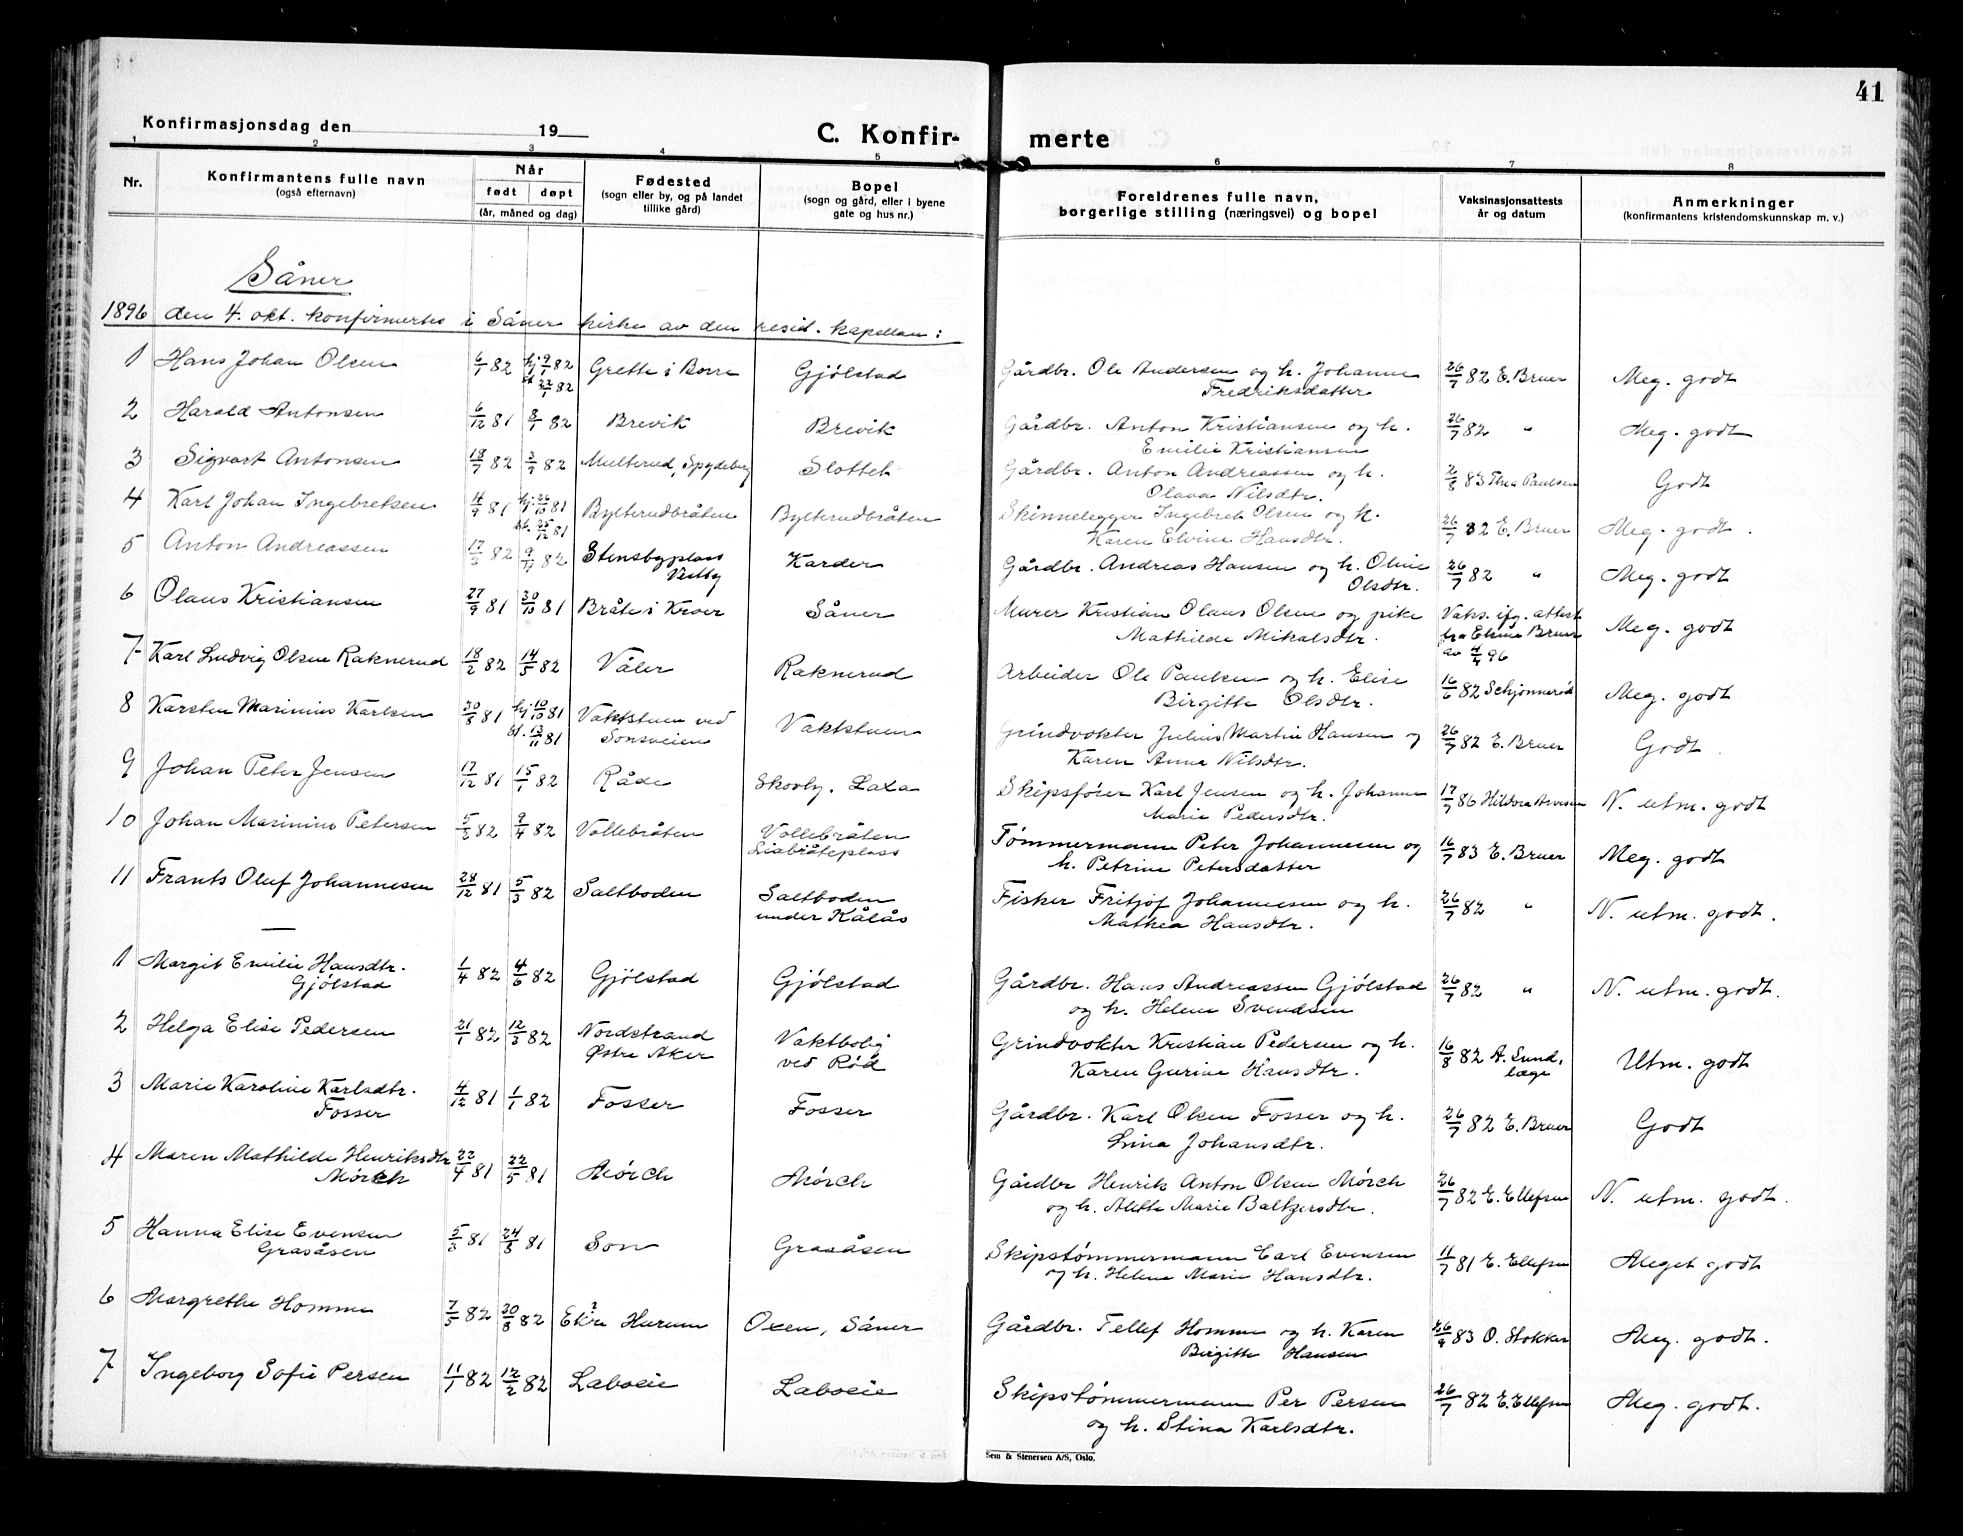 41
Konfirmasjonsdag den 19
C. Konfir-
merte
1 2 3 4 5 6 7 8
Nr.
Konfirmantens fulle navn
(også efternavn)
Når
født døpt
(år, måned og dag)
Fødested
(sogn eller by, og på landet
tillike gård)
Bopel
(sogn og gård, eller i byene
gate og hus nr.)
Foreldrenes fulle navn,
borgerlige stilling (næringsvei) og bopel
Vaksinasjonsattests
år og datum
Anmerkninger
(konfirmantens kristendomskunnskap m. v.)
Såner
1896 den 4. okt. konfirmertes i Såner kirke av den resid. kapellan:
1 Hans Johan Olsen 6/1 82 hj. 9/1 82 Grette i Borre Gjølstad Gårdbr. Ole Andersen og h. Johanne 26/7 82 E. Bruer Meg. godt
22/1 82 Fredriksdatter
2 Harald Antonsen 6/12 81 8/1 82 Brevik Brevik Gårdbr. Anton Kristiansen og h. 26/7 82 " Meg. godt
Emilie Kristiansen
3 Sigvart Antonsen 18/7 82 3/9 82 Multerud, Spydeberg Slottet Gårdbr. Anton Andreassen og h. 2/8 83 Thea Paulsen Godt
Olava Nilsdtr.
4 Karl Johan Ingebretsen 11/9 81 hj. 26/10 81 Bylterudbråten Bylterudbråten Skinnelegger Ingebret Olsen og h. 26/7 82 E. Bruer Meg. godt.
25/12 81 Karen Elvine Hansdtr.
5 Anton Andreassen 17/2 82 9/4 82 Stensbyplass Karder Gårdbr. Andreas Hansen og h. Oline 26/7 82 " Meg. godt
Vestby Olsdtr.
6 Olaus Kristiansen 27/9 81 30/10 81 Bråte i Kroer Såner Murer Kristian Olaus Olsen og pike Vaks. ifg. attest Meg. godt
Mathilde Mikalsdtr. fra Elvine Bruer
av 4/4 96
7 Karl Ludvig Olsen Raknerud 18/2 82 14/5 82 Våler Raknerud Arbeider Ole Paulsen og h. Elise 16/6 82 Schjønnerød Meg. godt
Birgitte Olsdtr.
8 Karsten Marinius Karlsen 30/8 81 hj. 10/10 81 Vaktstuen ved Vaktstuen Grindvokter Julius Martin Hansen og 26/7 82 E. Bruer Godt.
13/11 81 Sonsveien Karen Anna Nilsdtr.
9 Johan Peter Jensen 17/12 81 15/1 82 Råde Skovby. Laxa Skipsfører Karl Jensen og h. Johanne 17/7 86 Hildora Arvesen N. utm. godt
Marie Pedersdtr.
10 Johan Marinius Petersen 5/2 82 9/4 82 Vollebråten Vollebråten Tømmermann Peter Johannesen og 16/7 83 E. Bruer Meg. godt
Liabråteplass h. Petrine Petersdatter
11 Frants Oluf Johannesen 28/12 81 5/3 82 Saltboden Saltboden Fisker Fritjof Johannesen og h. 26/7 82 " N. utm. godt.
under Kålås Mathea Hansdtr.
1 Margit Emilie Hansdtr. 1/4 82 4/6 82 Gjølstad Gjølstad Gårdbr. Hans Andreassen Gjølstad 26/7 82 " N. utm. godt.
Gjølstad og h. Helene Svendsen
2 Helga Elise Pedersen 21/1 82 12/3 82 Nordstrand Vaktbolig Grindvokter Kristian Pedersen og h. 16/8 82 A. Lund, Utm. godt
Østre Aker ved Rød Karen Gurine Hansdtr. læge
3 Marie Karoline Karlsdtr. 4/12 81 1/1 82 Fosser Fosser Gårdbr. Karl Olsen Fosser og h. 26/7 82 E. Bruer Godt
Fosser Lina Johansdtr.
4 Maren Mathilde Henriksdtr 22/4 81 22/5 81 Mørch Mørch Gårdbr Henrik Anton Olsen Mørch 26/7 82 E. Ellefsen N. utm. godt.
Mørch og h. Alette Marie Baltzersdtr.
5 Hanna Elise Evensen 5/3 81 24/3 81 Son Grasåsen Skipstømmermann Carl Evensen 11/7 81 E. Ellefsen Meget godt
Grasåsen og h. Helene Marie Hansdtr.
6 Margrethe Homme 7/5 82 20/8 82 Hurum Oxen, Såner Gårdbr. Tellef Homme og h. Karen 26/9 83 O. Stokker Meg. godt.
Birgitte Hansen
7 Ingeborg Sofie Persen 11/1 82 12/2 82 Laboeie Laboeie Skipstømmermann Per Persen 26/7 82 E. Ellefsen Meg. godt.
og h. Stina Karlsdtr.
Sem & Stenersen A/S, Oslo.